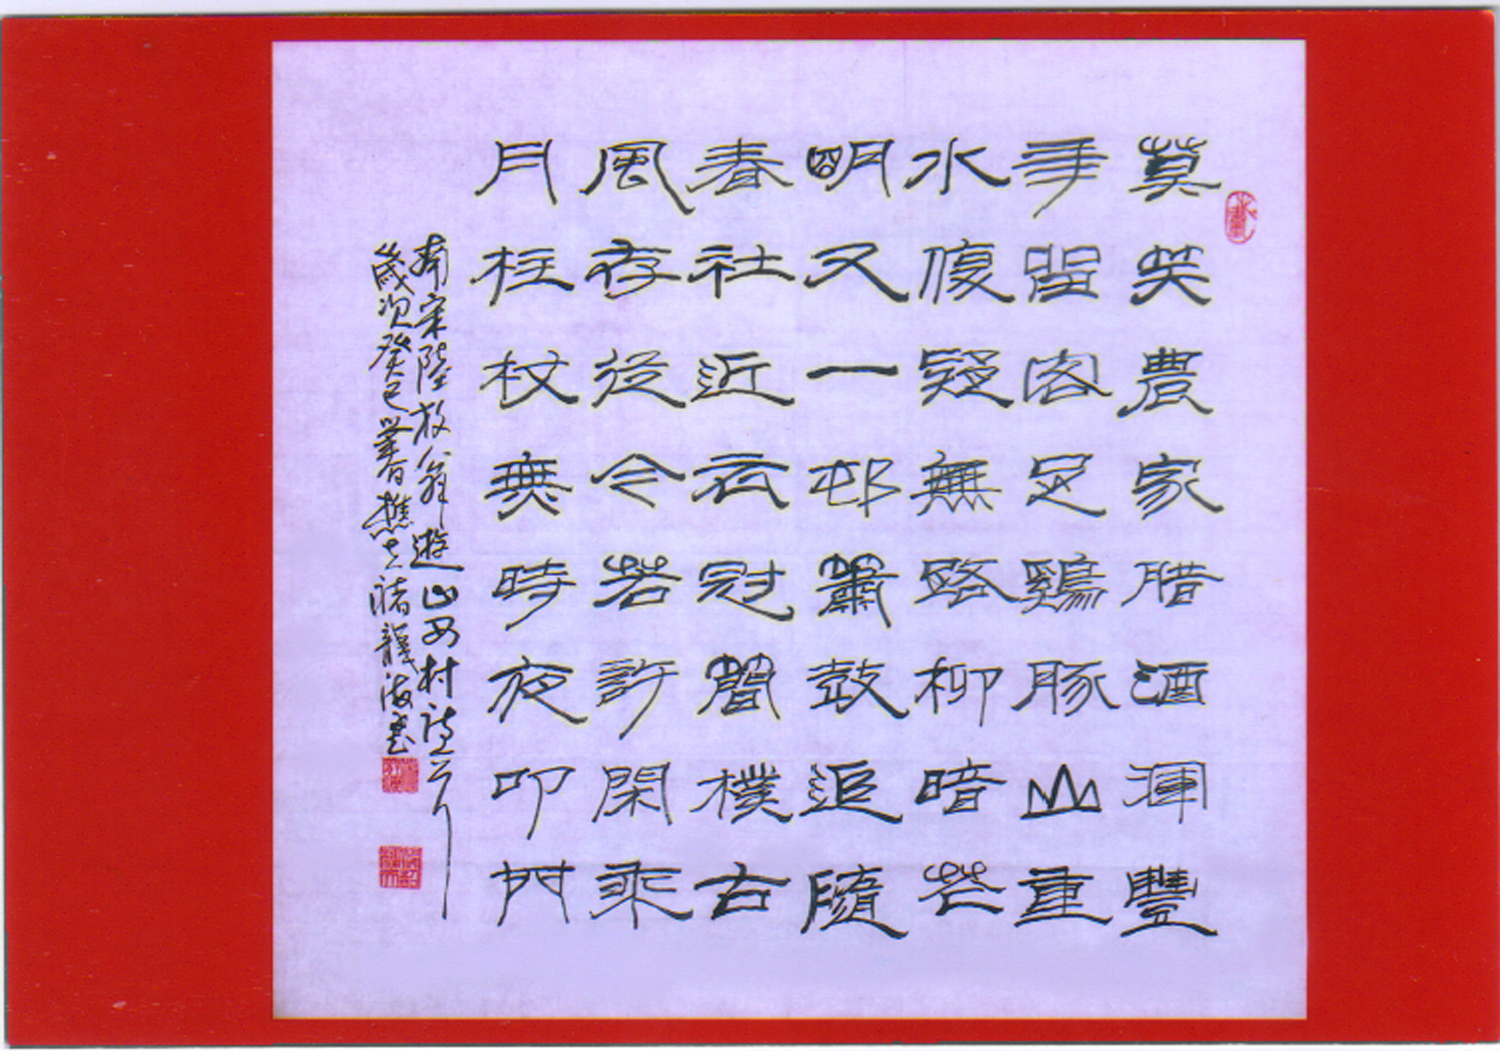 莫笑農家腊酒渾豐
年留客足鷄豚山重
水復疑無路柳暗花
明又一邨簫鼓追隨
春社近衣冠簡樸古
風存從今若許閑乘
月柱杖無時夜叩門
南宋陸放翁遊山西村詩
歲次癸巳暮春樵龍海書